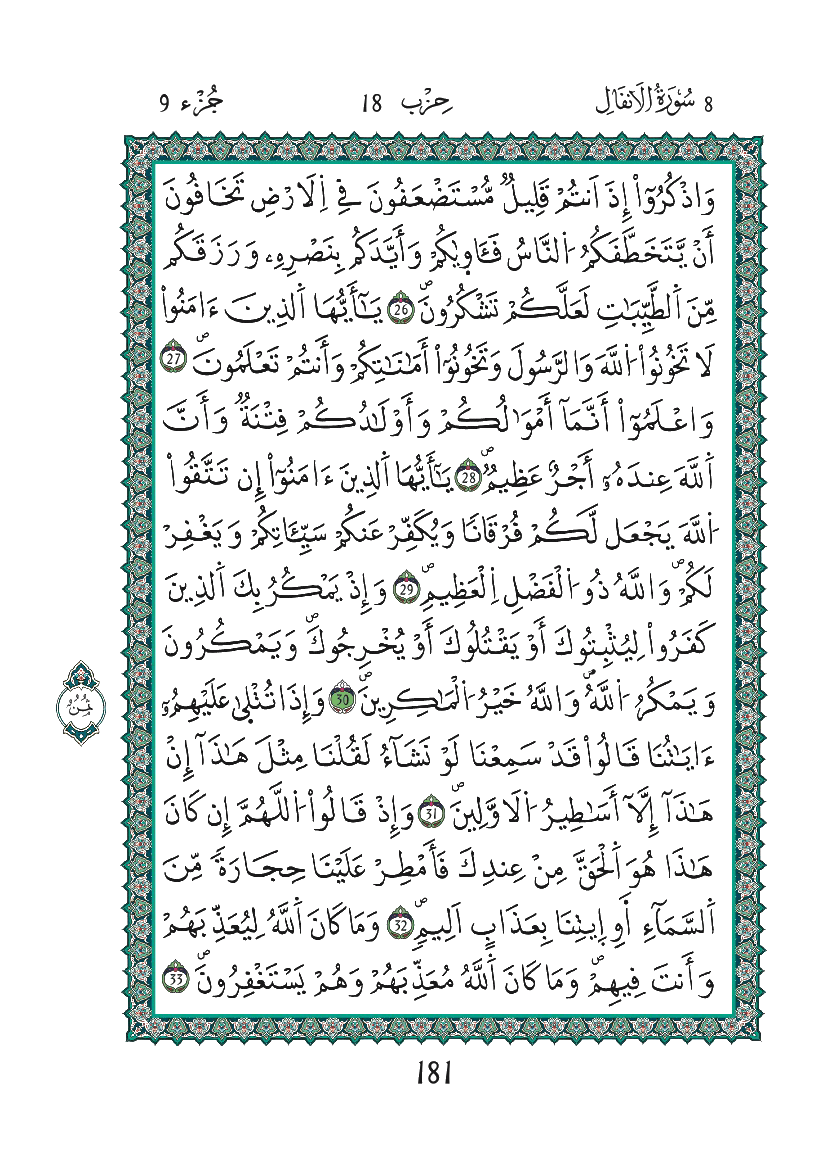 8 سُورَةُ الْأَنفَالِ حِزْب 18 جُزْء 9
وَاذْكُرُوٓاْ إِذَ اَنتُمْ قَلِيلٌ مُّسْتَضْعَفُونَ فِے اِلَارْضِ تَخَافُونَ
أَنْ يَّتَخَطَّفَكُمُ اَلنَّاسُ فَـَٔاو۪يٰكُمْ وَأَيَّدَكُم بِنَصْرِهِۦ وَرَزَقَكُم
مِّنَ اَلطَّيِّبَٰتِ لَعَلَّكُمْ تَشْكُرُونَۖ 26 يَٰٓأَيُّهَا اَلذِينَ ءَامَنُواْ
لَا تَخُونُواْ اُللَّهَ وَالرَّسُولَ وَتَخُونُوٓاْ أَمَٰنَٰتِكُمْ وَأَنتُمْ تَعْلَمُونَۖ 27
وَاعْلَمُوٓاْ أَنَّمَآ أَمْوَٰلُكُمْ وَأَوْلَٰدُكُمْ فِتْنَةٌ وَأَنَّ
اَللَّهَ عِندَهُۥٓ أَجْرٌ عَظِيمٌۖ 28 يَٰٓأَيُّهَا اَلذِينَ ءَامَنُوٓاْ إِن تَتَّقُواْ
اُللَّهَ يَجْعَل لَّكُمْ فُرْقَانًا وَيُكَفِّرْ عَنكُمْ سَيِّـَٔاتِكُمْ وَيَغْفِرْ
لَكُمْۖ وَاللَّهُ ذُو اُلْفَضْلِ اِلْعَظِيمِۖ 29 وَإِذْ يَمْكُرُ بِكَ اَلذِينَ
كَفَرُواْ لِيُثْبِتُوكَ أَوْ يَقْتُلُوكَ أَوْ يُخْرِجُوكَۖ وَيَمْكُرُونَ
وَيَمْكُرُ اُللَّهُۖ وَاللَّهُ خَيْرُ اُلْمَٰكِرِينَۖ 30 وَإِذَا تُتْل۪يٰ عَلَيْهِمُۥٓ
ثُمُن
ءَايَٰتُنَا قَالُواْ قَدْ سَمِعْنَا لَوْ نَشَآءُ لَقُلْنَا مِثْلَ هَٰذَآ إِنْ
هَٰذَآ إِلَّآ أَسَٰطِيرُ اُلَاوَّلِينَۖ 31 وَإِذْ قَالُواْ اُللَّهُمَّ إِن كَانَ
هَٰذَا هُوَ اَلْحَقَّ مِنْ عِندِكَ فَأَمْطِرْ عَلَيْنَا حِجَارَةً مِّنَ
اَلسَّمَآءِ أَوِ اِيتِنَا بِعَذَابٍ اَلِيمٍۖ 32 وَمَا كَانَ اَللَّهُ لِيُعَذِّبَهُمْ
وَأَنتَ فِيهِمْۖ وَمَا كَانَ اَللَّهُ مُعَذِّبَهُمْ وَهُمْ يَسْتَغْفِرُونَۖ 33
181